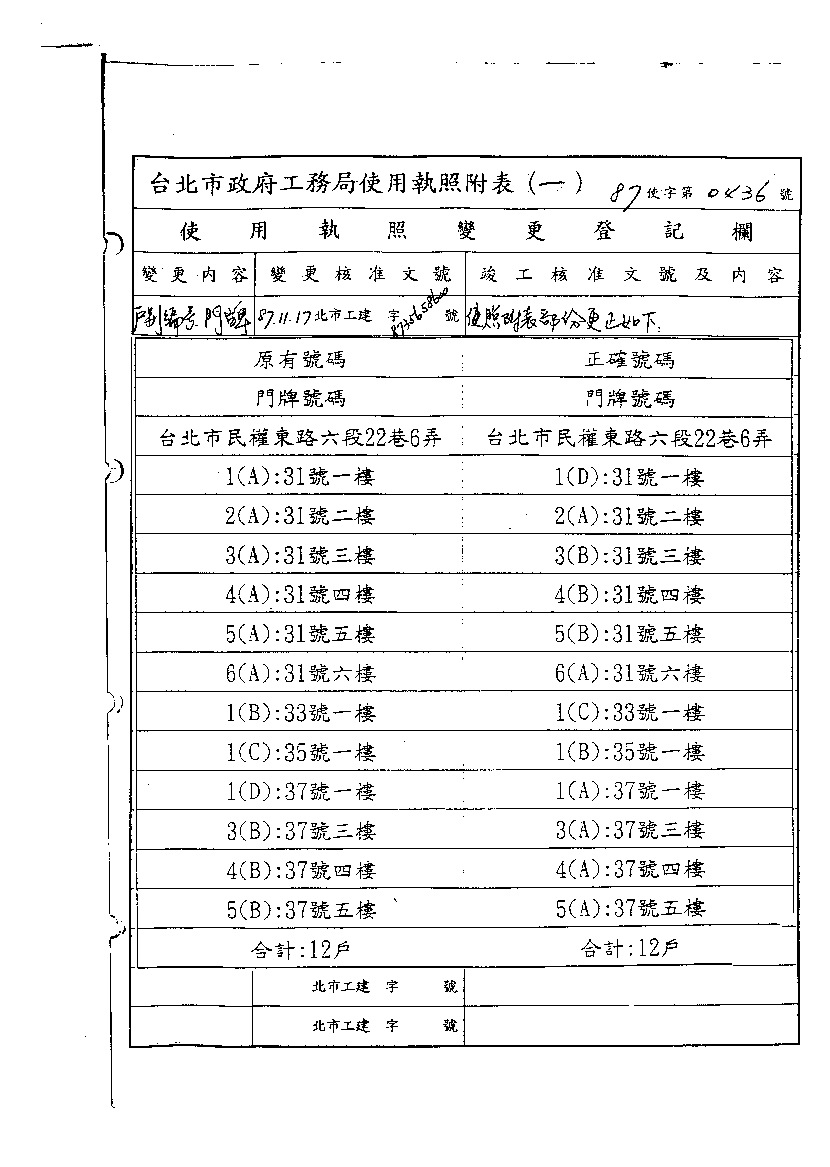 台北市政府工務局使用執照附表(一) 87使字第0436號
使用執照變更登記欄
變更內容 變更核准文號 竣工核准文號及內容
戶別編號門牌 87.11.17北市工建 字8735658600號 使照附表部份更正如下:
原有號碼 正確號碼
門牌號碼 門牌號碼
台北市民權東路六段22巷6弄 台北市民權東路六段22巷6弄
1(A):31號一樓 1(D):31號一樓
2(A):31號二樓 2(A):31號二樓
3(A):31號三樓 3(B):31號三樓
4(A):31號四樓 4(B):31號四樓
5(A):31號五樓 5(B):31號五樓
6(A):31號六樓 6(A):31號六樓
1(B):33號一樓 1(C):33號一樓
1(C):35號一樓 1(B):35號一樓
1(D):37號一樓 1(A):37號一樓
3(B):37號三樓 3(A):37號三樓
4(B):37號四樓 4(A):37號四樓
5(B):37號五樓 5(A):37號五樓
合計:12戶 合計:12戶
北市工建 字 號
北市工建 字 號